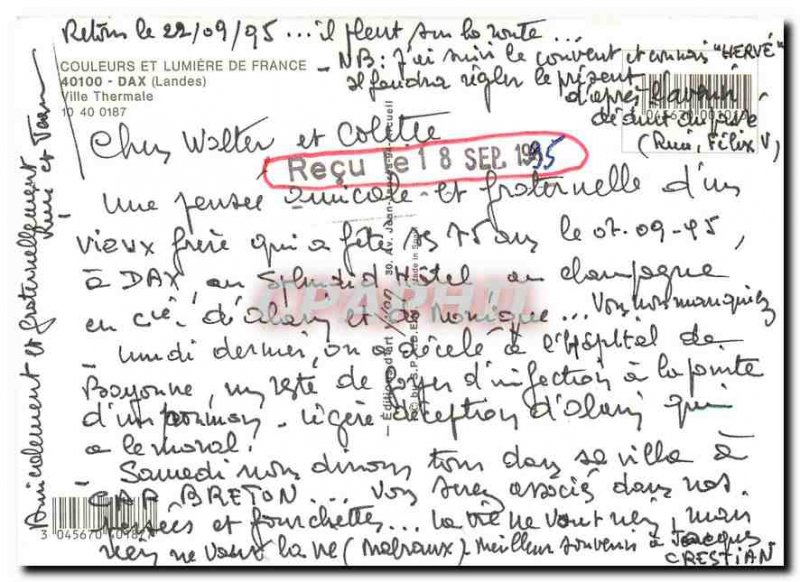 Retour le 22/09/95 ... il pleut sur la route ...
COULEURS ET LUMIÈRE DE FRANCE
40100 - DAX (Landes)
Ville Thermale
10 40 0187
NB: J'ai suivi le couvent et connais "HERVÉ"
Il faudra régler le présent
d'après l'avenir
déduit du passé
(Rui, Félix V)
Cher Walter et Colette
Reçu le 18 SEP. 1995
Une pensée amicale et fraternelle d'un
vieux frère qui a fêté ses 75 ans le 07.09-95,
à DAX, au Splendid Hôtel au champagne
en cie d'Alain et de Monique ... Vous nous manquiez
Lundi dernier, on a décelé à l'Hôpital de
Bayonne, un reste de foyer d'infection à la pointe
d'un poumon - légère déception d'Alain qui
a le moral.
Samedi nous dinons tous dans sa villa à
CAP BRETON ... Vous serez associés dans nos
pensées et fourchettes ... La vie ne vaut rien, mais
rien ne vaut la vie (Malraux) - Meilleur souvenir à Jacques
CRESTIAN
Amicalement et fraternellement
3 045670 401827